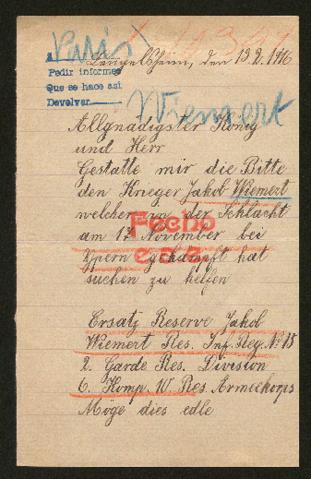 Paris
den 13.2.1916
Pedir informes
Que se hace así
Devolver
Wiemert
Allgnädigster König
und Herr
Gestatte mir die Bitte
den Krieger Jakob Wiemert
welcher in der Schlacht
am 17 November bei
Ypern gekämpft hat
suchen zu helfen
Fecho
Ersatz Reserve Jakob
Wiemert Res. Inf. Reg. No
2. Garde Res. Division
6. Komp. W. Res. Armeekorps
Möge dies edle